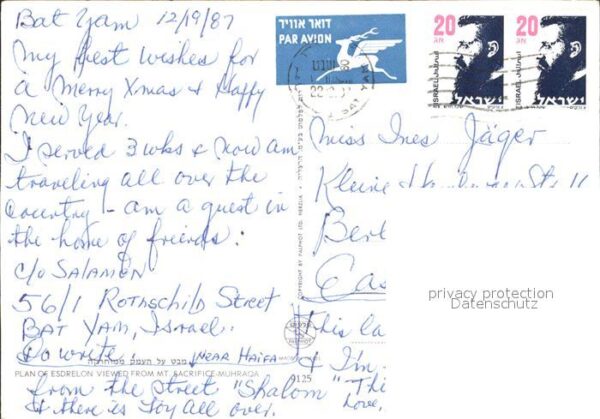 Bat Yam 12/19/87
My best wishes for
a Merry Xmas & Happy
New Year.
I served 3 wks & now am
traveling all over the
country - am a guest in
the home of friends:
c/o SALAMON
56/1 ROTHSCHILD STREET
BAT YAM, ISRAEL.
Do write. (NEAR HAIFA
מבט על העמק
PLAIN OF ESDRELON VIEWED FROM MT. SACRIFICE-MUHRAQA
9125
from the street "Shalom"
& there is Joy all over.
דואר אוויר
PAR AVION
BAT YAM
20
20
ISRAEL
ישראל
ISRAEL
ישראל
COPYRIGHT BY PALPHOT LTD. HERZLIA
PALPHOT
Miss Ines Jäger
Kleine
Berl
Eas
This ca
& I'm
Thi
Love,
privacy protection
Datenschutz